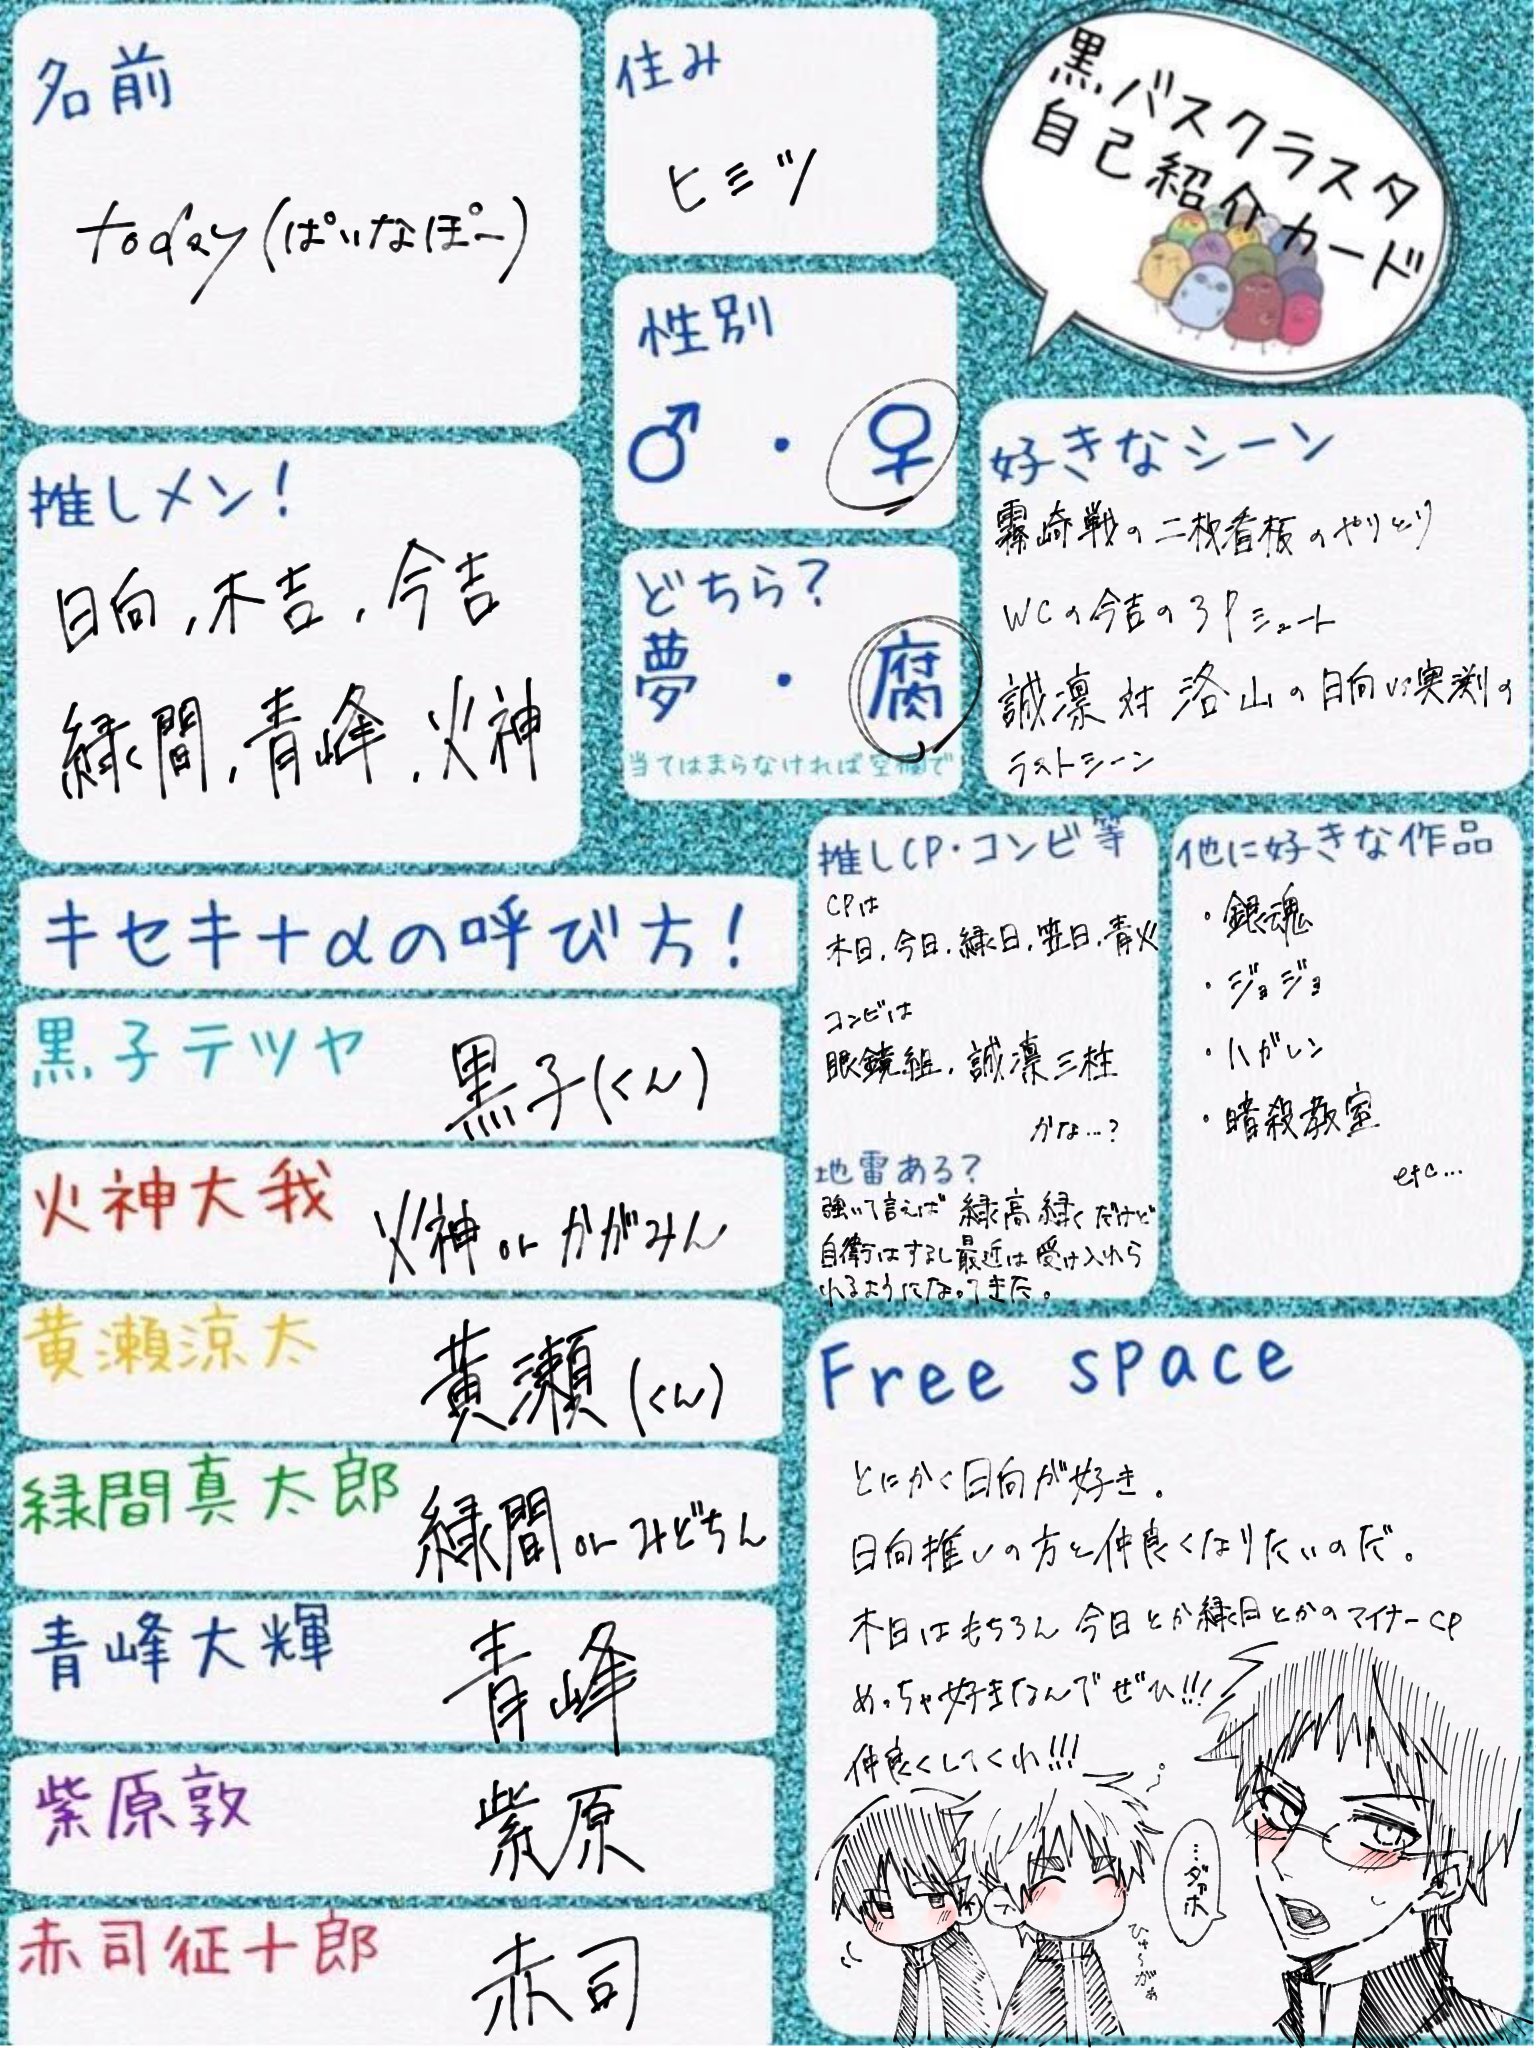 黒バスクラスタ
自己紹介カード
名前
today(ぱいなぽー)
住み
ヒミツ
性別
♂・♀
推しメン!
日向,木吉,今吉
緑間,青峰,火神
どちら?
夢・腐
当てはまらなければ空欄で
好きなシーン
霧崎戦の二枚看板のやりとり
WCの今吉の3Pシュート
誠凛対洛山の日向vs実渕の
ラストシーン
キセキ+αの呼び方!
黒子テツヤ
黒子(くん)
火神大我
火神orかがみん
黄瀬涼太
黄瀬(くん)
緑間真太郎
緑間orみどちん
青峰大輝
青峰
紫原敦
紫原
赤司征十郎
赤司
推しCP・コンビ等
CPは
木日,今日,緑日,笠日,青火
コンビは
眼鏡組,誠凛三柱
かな…?
地雷ある?
強いて言えば 緑高緑くだけど
自衛はするし最近は受け入れら
れるようになってきた。
他に好きな作品
・銀魂
・ジョジョ
・ハガレン
・暗殺教室
etc…
Free space
とにかく日向が好き。
日向推しの方と仲良くなりたいのだ。
木日はもちろん今日とか緑日とかのマイナーCP
めっちゃ好きなんでぜひ!!!
仲良くしてくれ!!!
…ダァホ
ひゅ〜がぁ